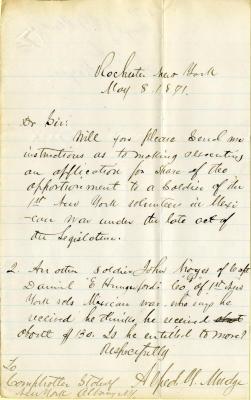 Rochester New York
May 8 1871.
Dr Sir:
Will you Please Send me
instructions as to making executing
an application for Share of the
apportionment to a Soldier of the
1st New York volunteers in Mexi
-can war under the late act of
the Legislature.
2. An other Soldier John of Capt
Daniel E Hungerford's Co of 1st New
York vols Mexican war who says he
received he thinks he received
about of 30. Is he entitled to more?
Respectfully
Alfred G. Mudge
To
Comptroller
New York Albany